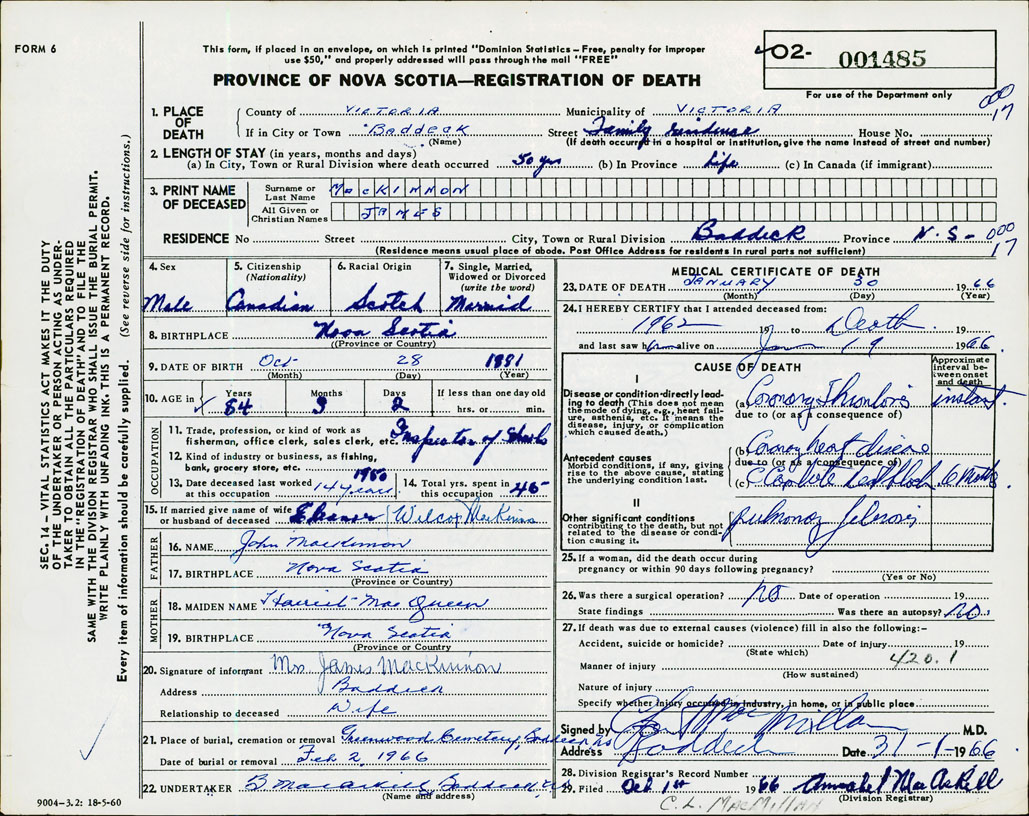 FORM 6
This form, if placed in an envelope, on which is printed "Dominion Statistics – Free, penalty for improper
use $50," and properly addressed will pass through the mail "FREE"
PROVINCE OF NOVA SCOTIA—REGISTRATION OF DEATH
02- 001485
For use of the Department only
000
17
1. PLACE OF DEATH
County of VICTORIA Municipality of VICTORIA
If in City or Town Baddeck Street Family residence House No.
(Name) (If death occurred in a hospital or institution, give name instead of street and number)
2. LENGTH OF STAY (in years, months and days)
(a) In City, Town or Rural Division where death occurred 50 yrs (b) In Province life (c) In Canada (if immigrant)
3. PRINT NAME OF DECEASED
Surname or Last Name MacKINNON
All Given or Christian Names JAMES
RESIDENCE No Street City, Town or Rural Division Baddeck Province N.S-
000
17
(Residence means usual place of abode. Post Office Address for residents in rural parts not sufficient)
4. Sex Male
5. Citizenship (Nationality) Canadian
6. Racial Origin Scotch
7. Single, Married, Widowed or Divorced (write the word) Married
8. BIRTHPLACE Nova Scotia
(Province or Country)
9. DATE OF BIRTH Oct 28 1881
(Month) (Day) (Year)
10. AGE in Years 84 Months 3 Days 2 If less than one day old hrs. or min.
OCCUPATION
11. Trade, profession, or kind of work as
fisherman, office clerk, sales clerk, etc. Inspector of Schools
12. Kind of industry or business, as fishing,
bank, grocery store, etc.
13. Date deceased last worked at this occupation 1950 14 years
14. Total yrs. spent in this occupation 45
15. If married give name of wife or husband of deceased Eleanor Wilcox MacKinnon
FATHER
16. NAME John MacKinnon
17. BIRTHPLACE Nova Scotia
(Province or Country)
MOTHER
18. MAIDEN NAME Harriet MacQueen
19. BIRTHPLACE Nova Scotia
(Province or Country)
20. Signature of informant Mrs. James MacKinnon
Address Baddeck
Relationship to deceased Wife
21. Place of burial, cremation or removal Greenwood Cemetery, Baddeck, NS
Date of burial or removal Feb 2, 1966
22. UNDERTAKER Baddeck
(Name and address)
MEDICAL CERTIFICATE OF DEATH
23. DATE OF DEATH JANUARY 30 1966
(Month) (Day) (Year)
24. I HEREBY CERTIFY that I attended deceased from:
1962 19 to Death 19
and last saw him alive on Jan 19 1966.
CAUSE OF DEATH
Approximate interval between onset and death
I
Disease or condition directly leading to death (This does not mean the mode of dying, e.g., heart failure, asthenia, etc. It means the disease, injury, or complication which caused death.)
(a) Coronary Thrombosis instant
due to (or as a consequence of)
Antecedent causes
Morbid conditions, if any, giving rise to the above cause, stating the underlying condition last.
(b) Coronary heart disease
due to (or as a consequence of)
(c) Complete heart block 6 months
II
Other significant conditions contributing to the death, but not related to the disease or condition causing it.
pulmonary fibrosis
25. If a woman, did the death occur during
pregnancy or within 90 days following pregnancy?
(Yes or No)
26. Was there a surgical operation? no Date of operation 19
State findings Was there an autopsy? no
27. If death was due to external causes (violence) fill in also the following:–
Accident, suicide or homicide? Date of injury 19
(State which) 420.1
Manner of injury
(How sustained)
Nature of injury
Specify whether injury occurred in industry, in home, or in public place
Signed by C L MacMillan M.D.
Address Baddeck Date 31-1-1966
28. Division Registrar's Record Number
29. Filed Feb 1st 1966 Annabel MacAskill
(Division Registrar)
C. L. MACMILLAN
SEC. 14 – VITAL STATISTICS ACT MAKES IT THE DUTY
OF THE UNDERTAKER OR PERSON ACTING AS UNDER-
TAKER TO OBTAIN ALL THE PARTICULARS REQUIRED
IN THE "REGISTRATION OF DEATH" AND TO FILE THE
SAME WITH THE DIVISION REGISTRAR WHO SHALL ISSUE THE BURIAL PERMIT.
WRITE PLAINLY WITH UNFADING INK. THIS IS A PERMANENT RECORD.
Every item of information should be carefully supplied. (See reverse side for instructions.)
9004–3.2: 18-5-60